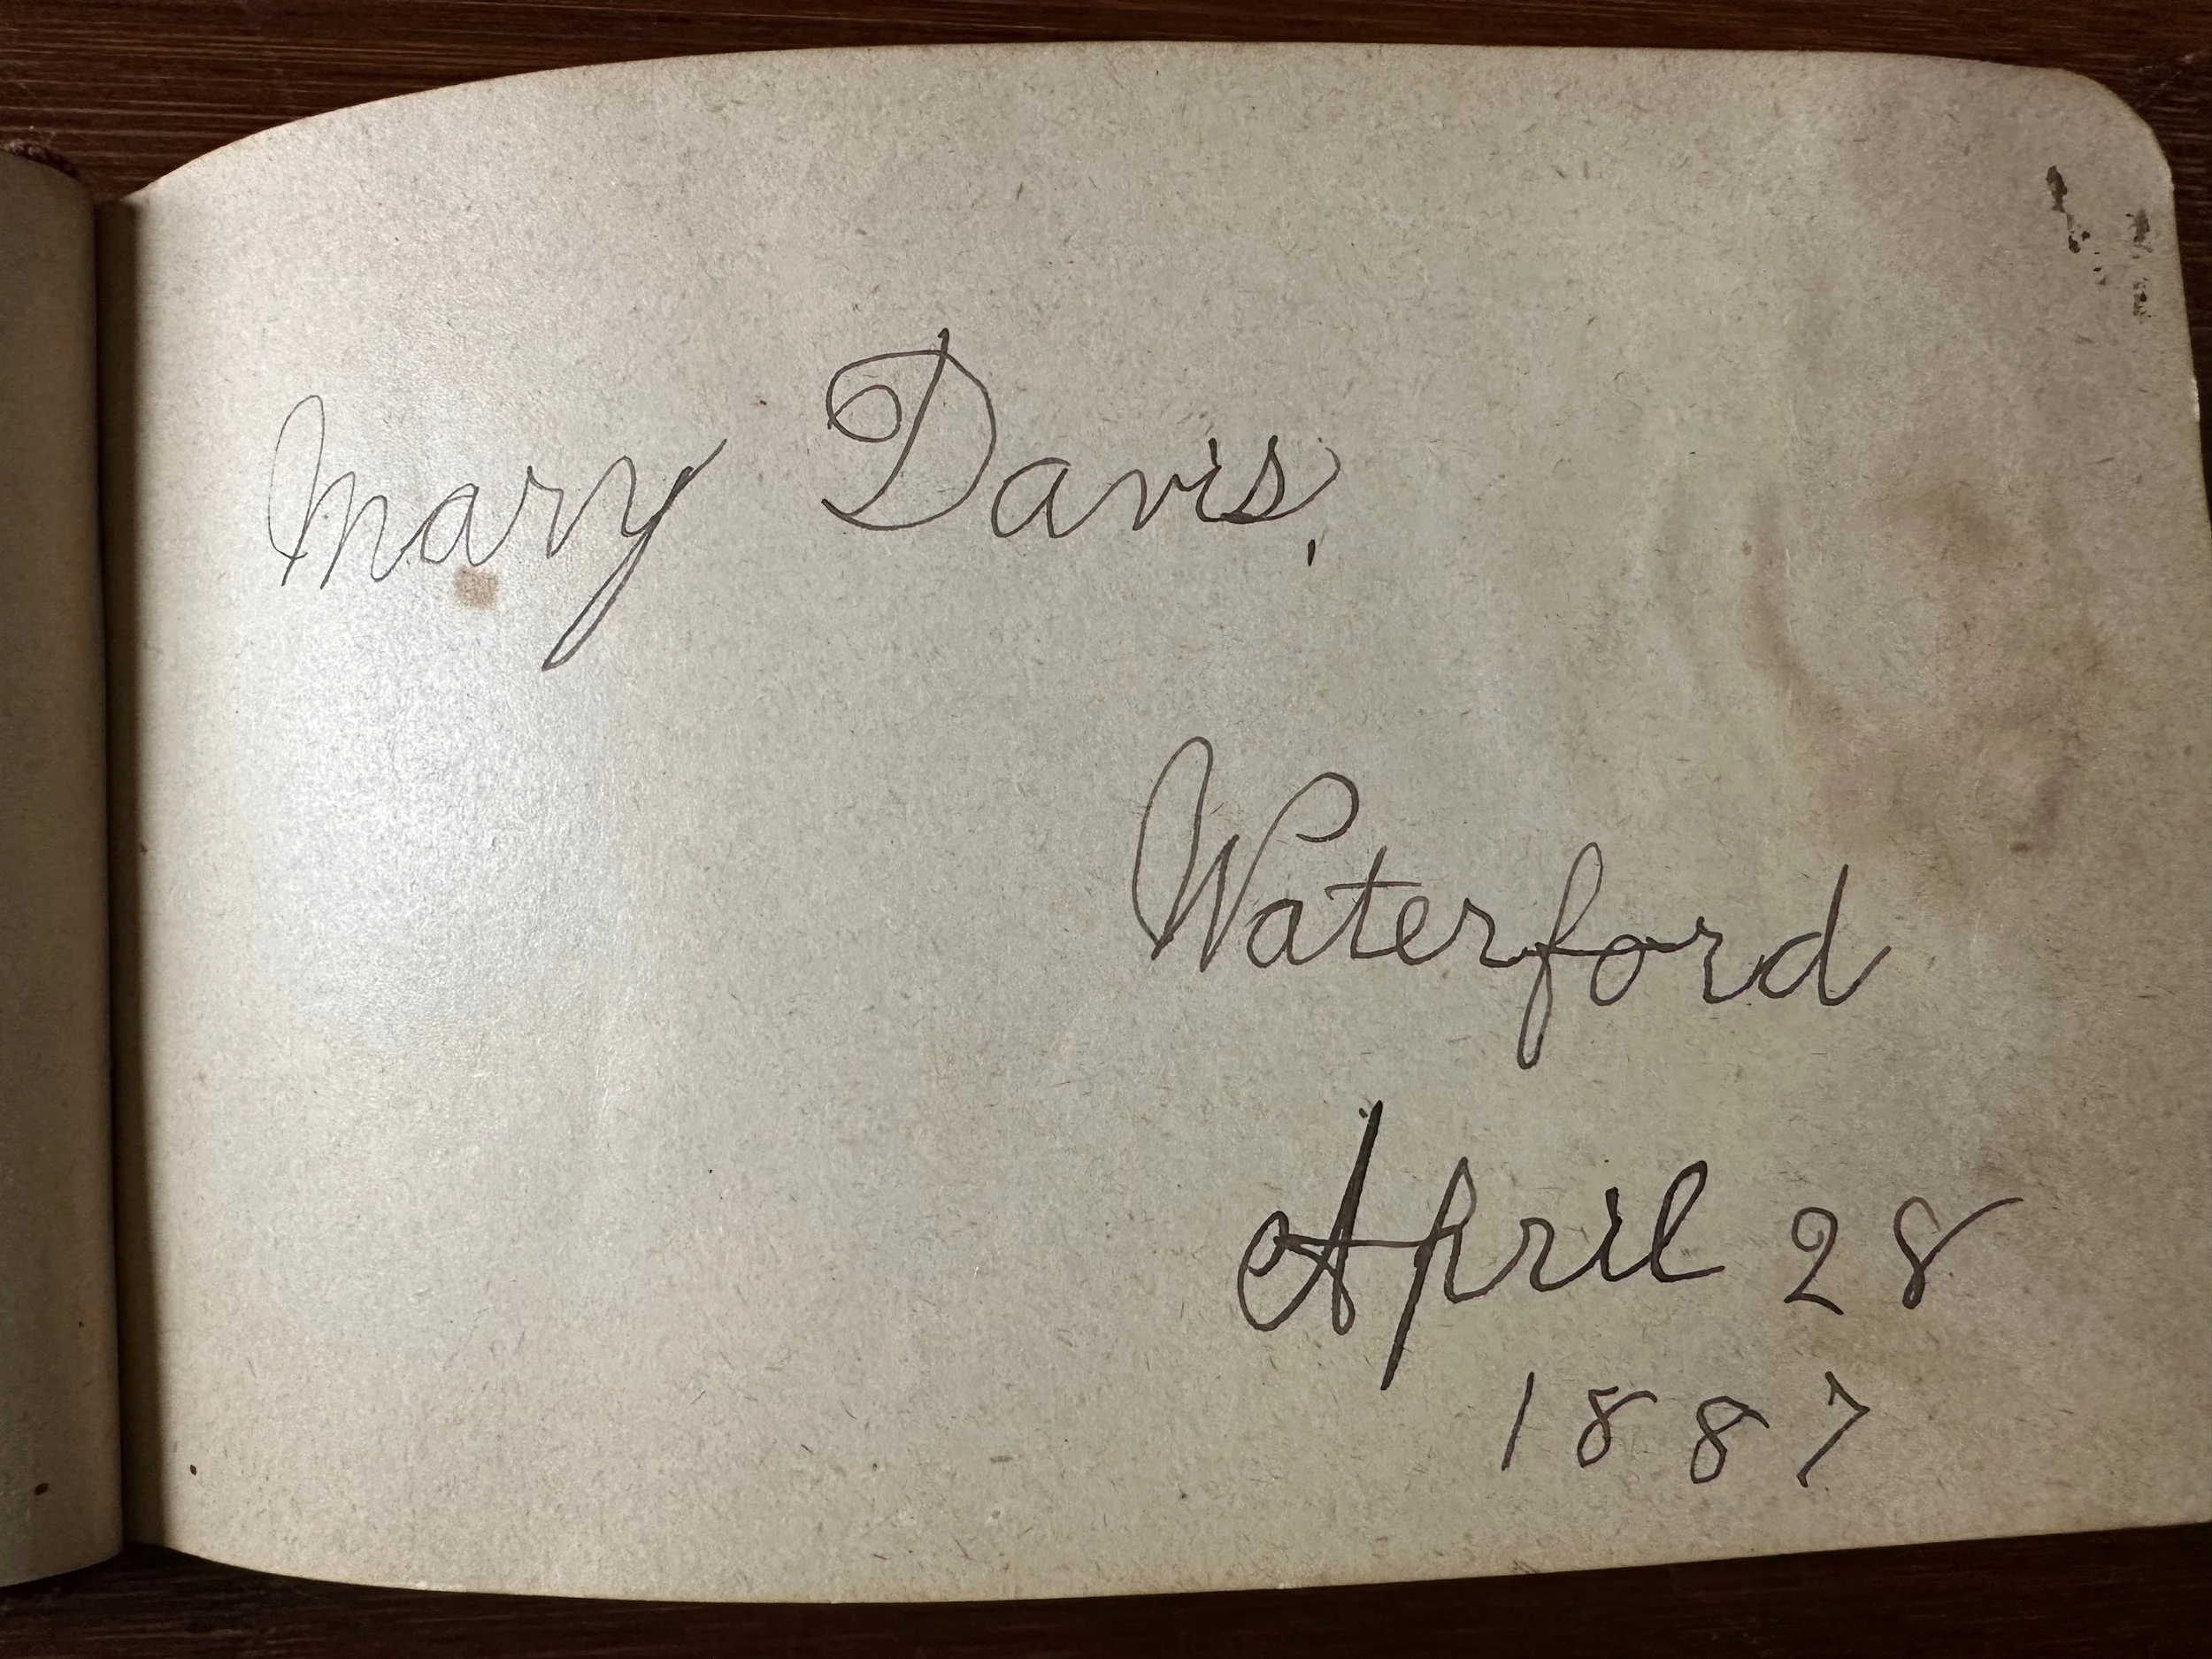 Mary Davis,
Waterford
April 28
1887